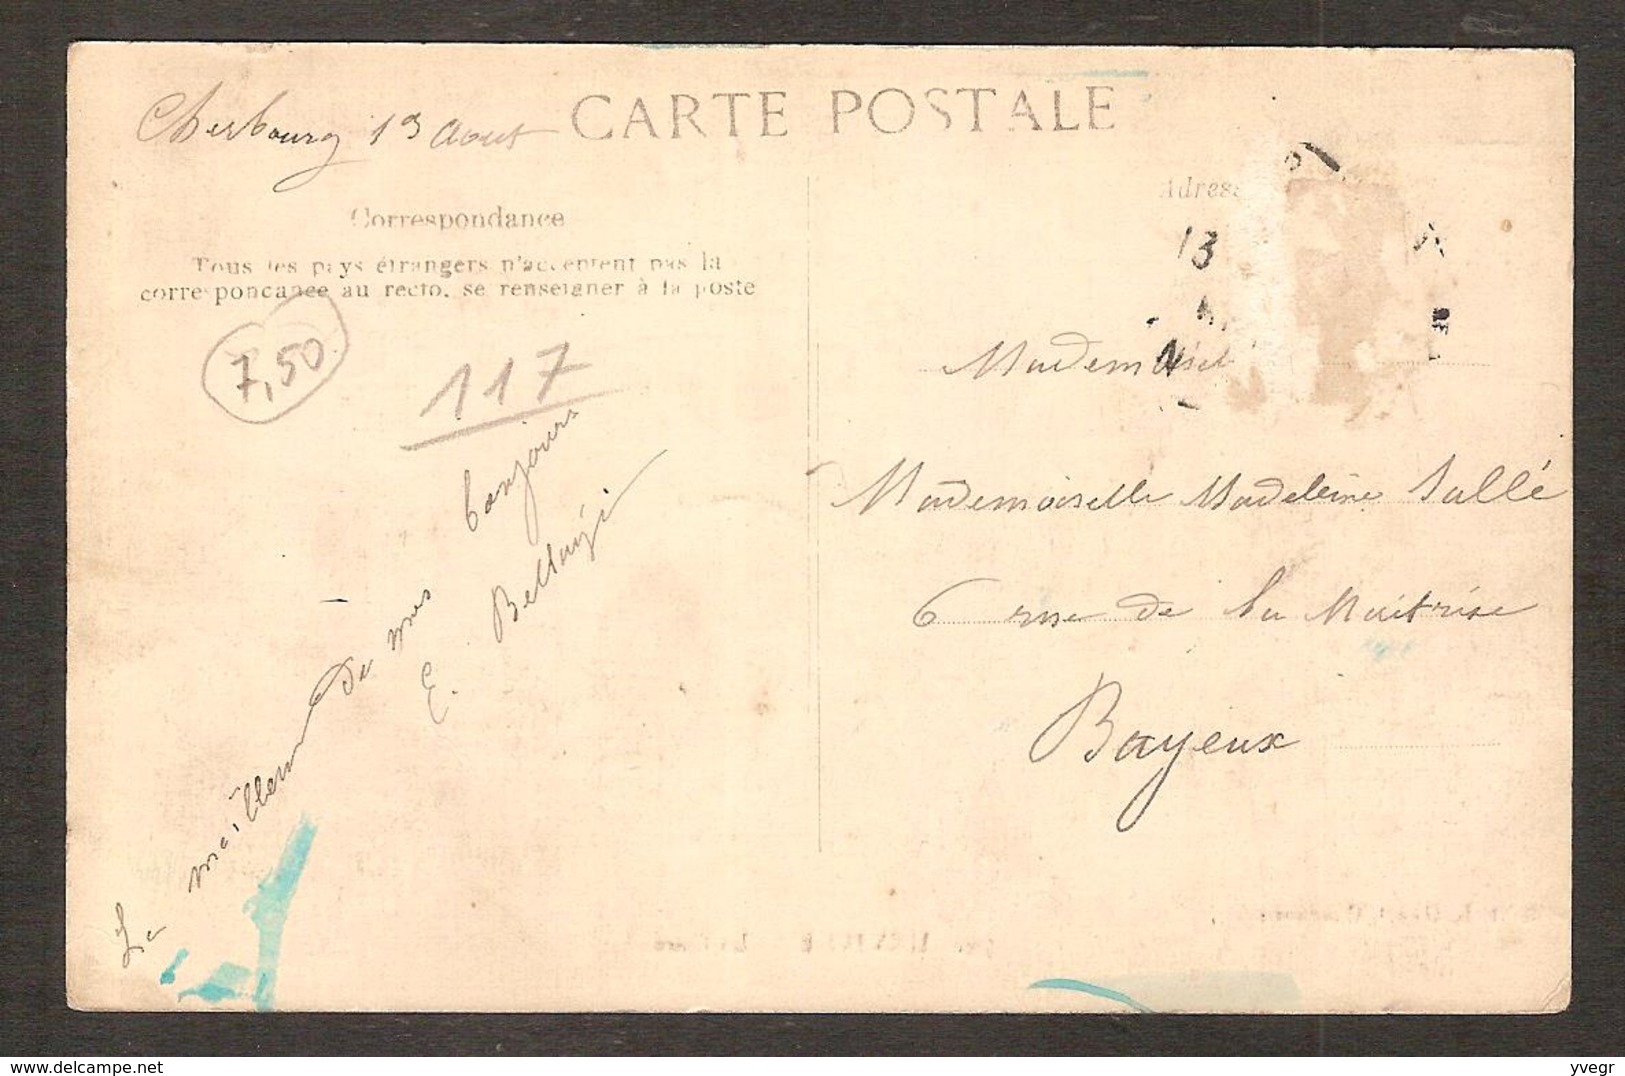 CARTE POSTALE
Cherbourg 13 Aout
Correspondance
Tous les pays étrangers n'acceptent pas la
correspondance au recto, se renseigner à la poste
7,50
117
Le meilleur de mes bonjours
E.
Adresse
13
Mademoisel
Mademoiselle Madeleine Sallé
6 rue de la Maitrise
Bayeux
https://www.delcampe.net
yvegr